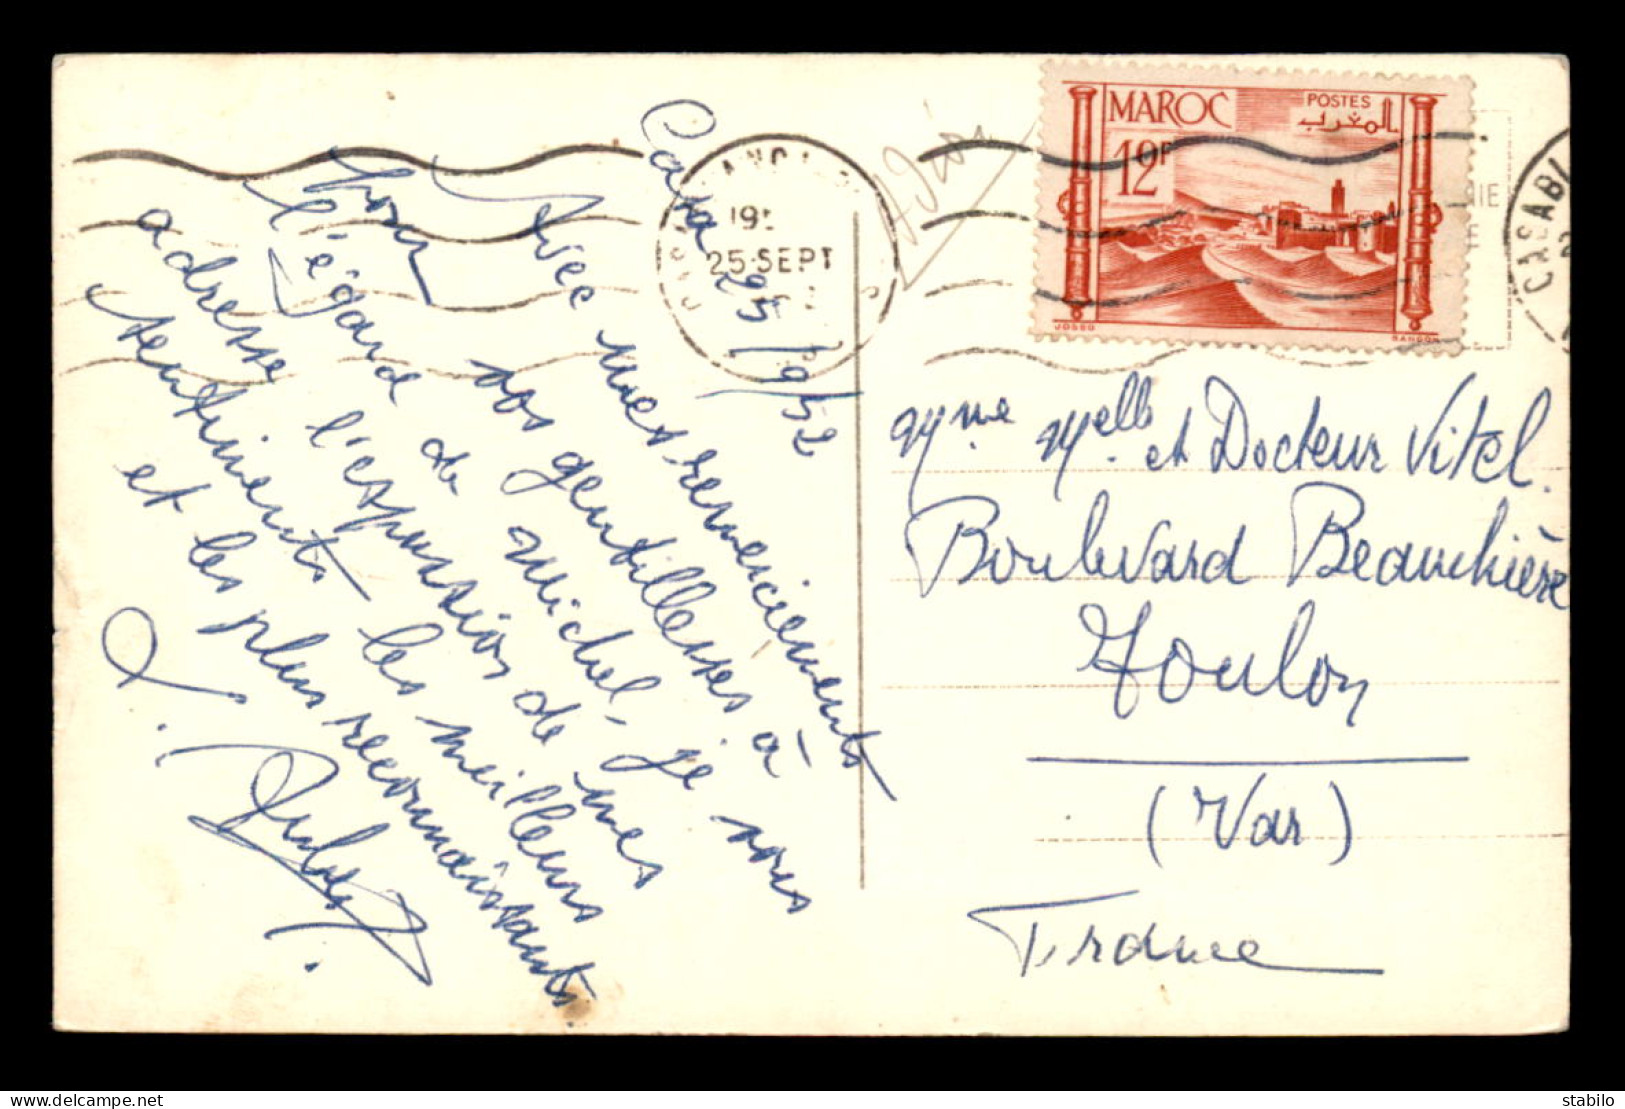 Casa 25/9/52
Avec mes remerciements
pour vos gentillesses à
l'égard de Michel, je vous
adresse l'expression de mes
sentiments les meilleurs
et les plus reconnaissants.
19
25·SEPT
CASABL
MAROC
POSTES
المغرب
12F
JOSSO
BARDON
Mme Melle et Docteur Vitel.
Boulevard Beauchière
Toulon
(Var)
France